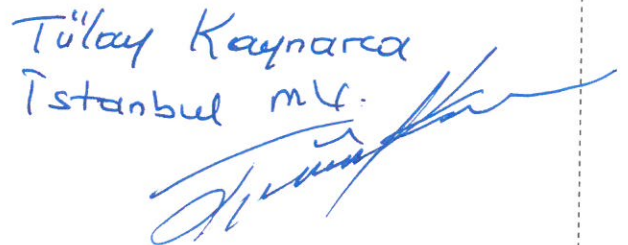 Tülay Kaynarca
İstanbul mv.